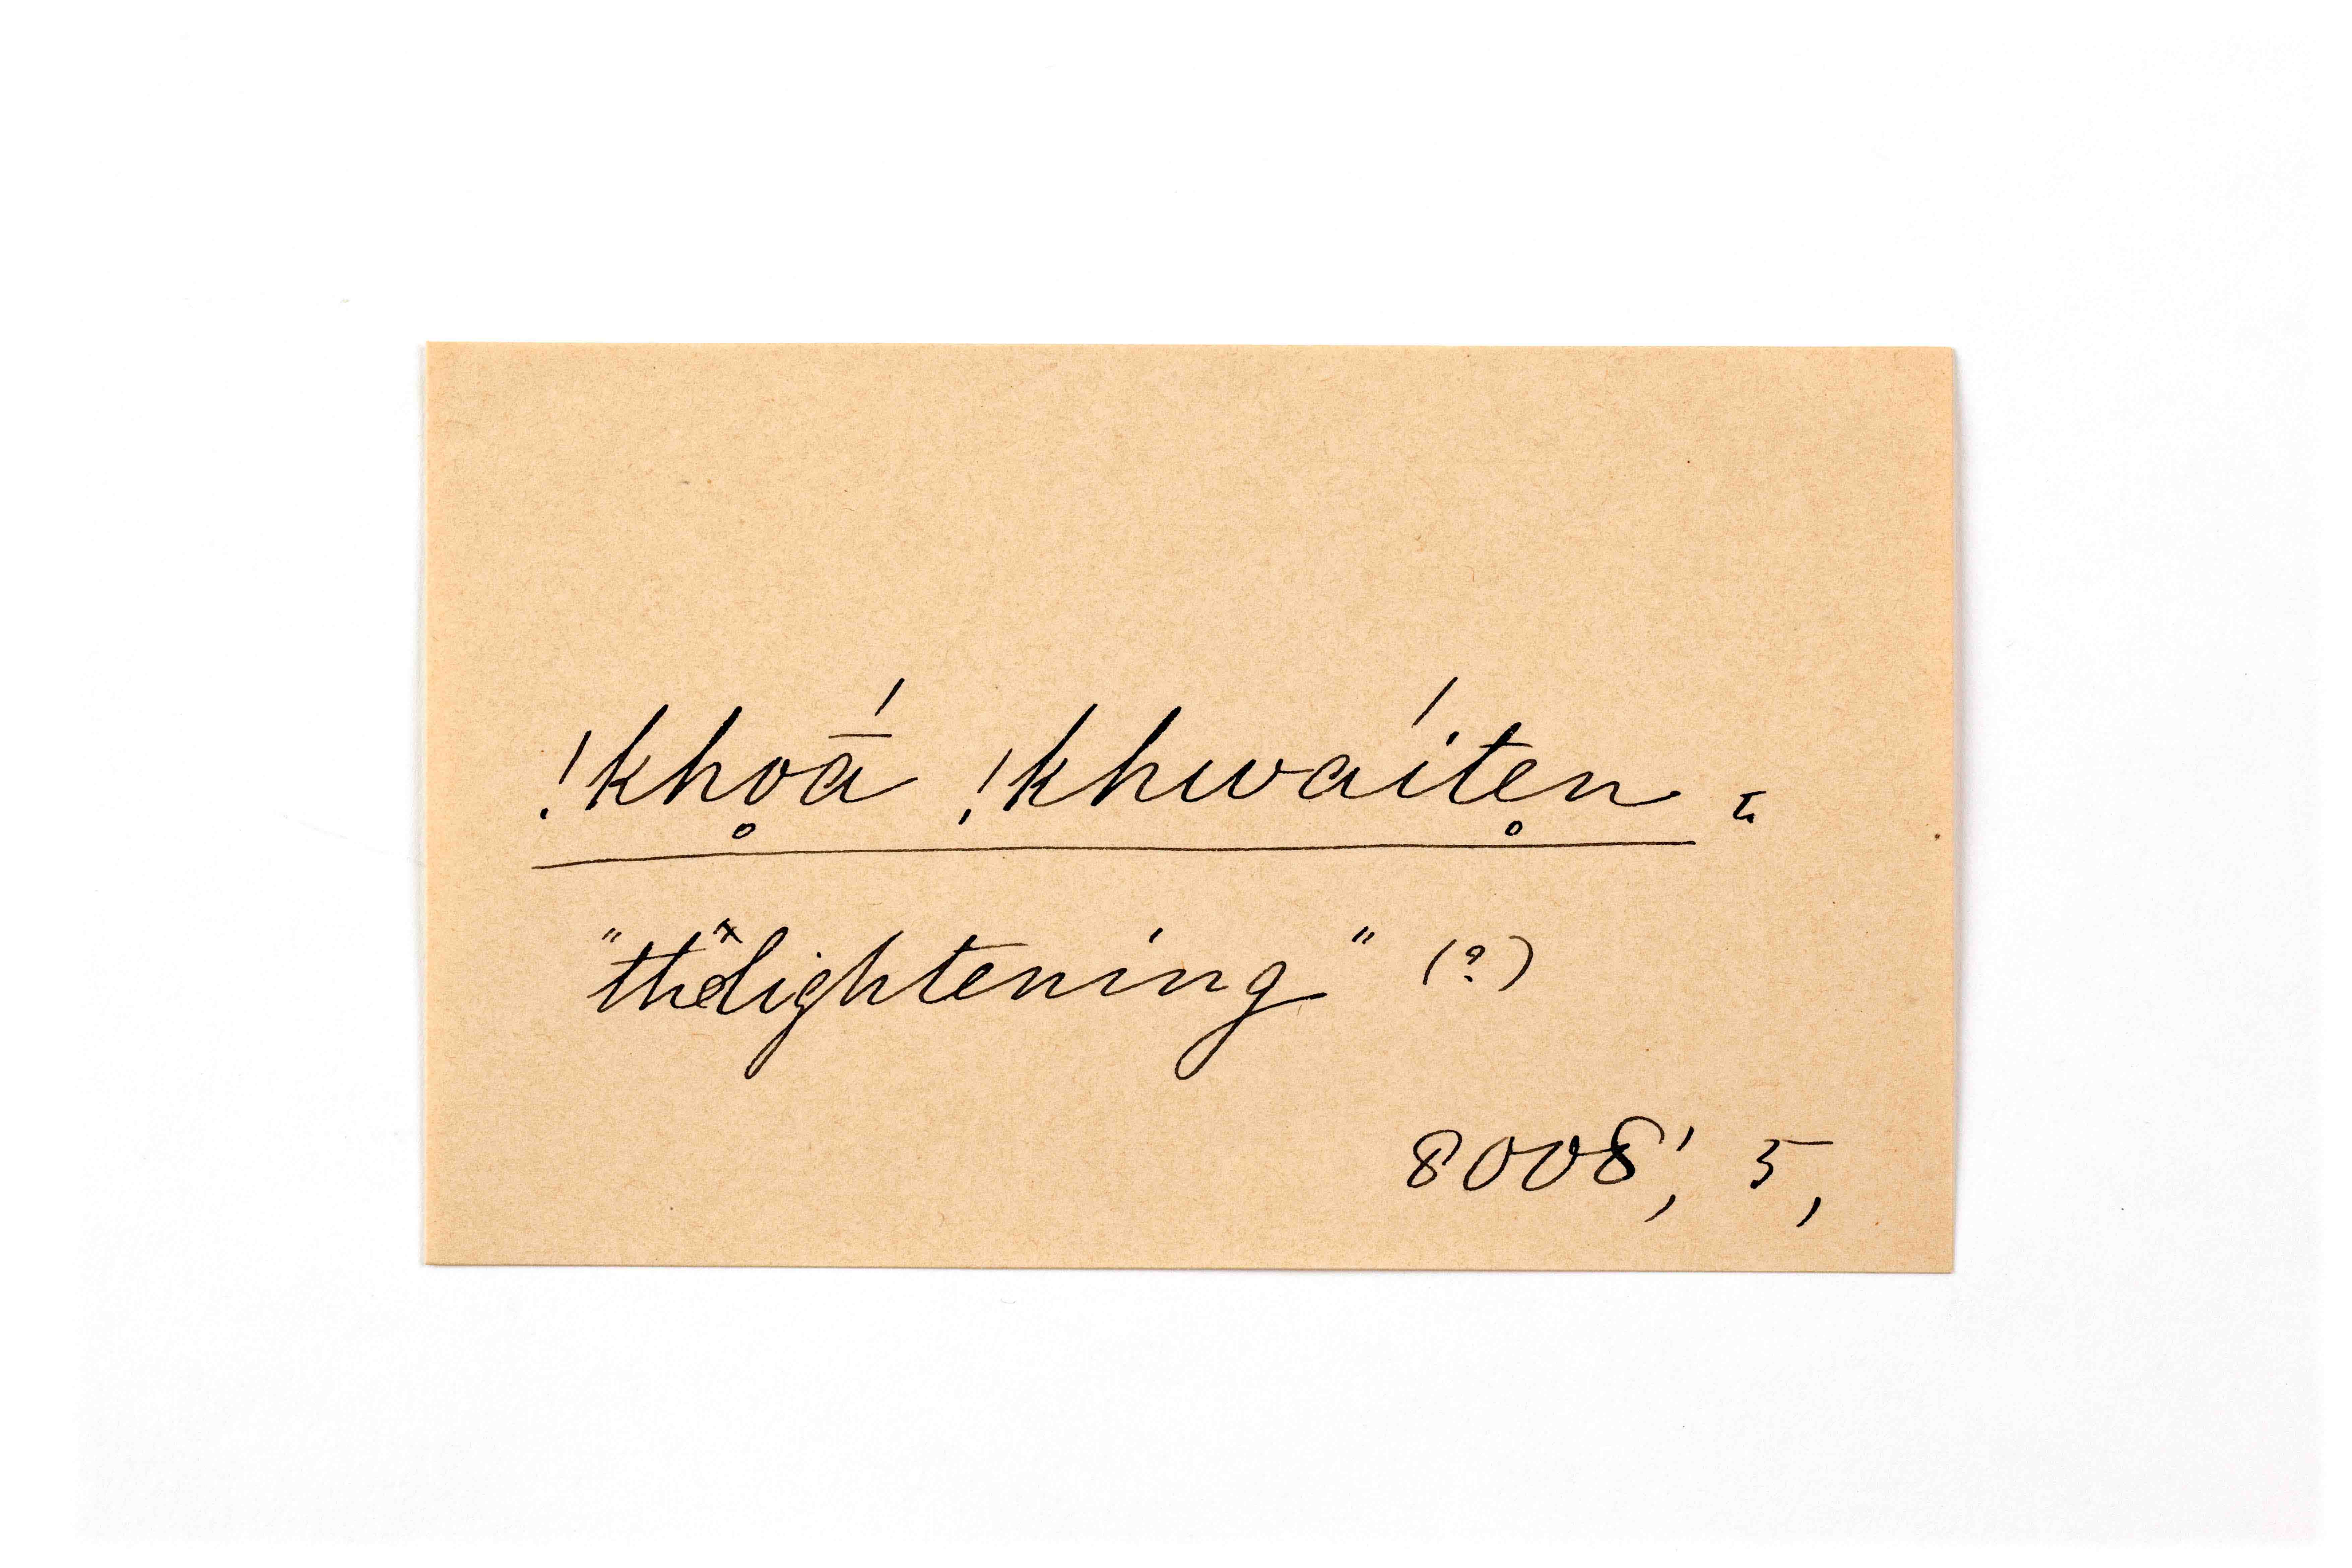 !kho̥ā́ !khwáite̥n =
"the lightening" (?)
8008', 5,